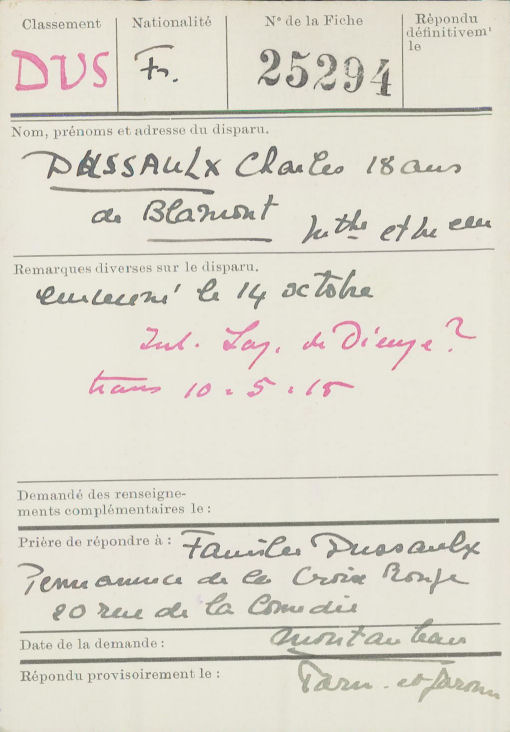 Classement
Nationalité
N° de la Fiche
Répondu
définitivem^t
le
DUS
Fr.
25294
Nom, prénoms et adresse du disparu.
DUSSAULX Charles 18 ans
de Blamont
Mthe et Melle
Remarques diverses sur le disparu.
emmené le 14 octobre
Laz. de Dieuze ?
trans 10-5-15
Demandé des renseigne-
ments complémentaires le :
Prière de répondre à : Famille Dussaulx
Permanence de la Croix Rouge
20 rue de la Comédie
Date de la demande : Montauban
Répondu provisoirement le : Tarn-et-Garonne